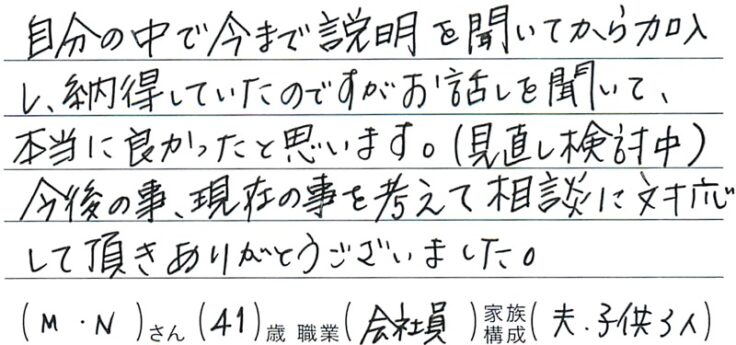 自分の中で今まで説明を聞いてから加入
し、納得していたのですがお話しを聞いて、
本当に良かったと思います。(見直し検討中)
今後の事、現在の事を考えて相談に対応
して頂きありがとうございました。
(M・N)さん(41)歳 職業(会社員)家族構成(夫・子供3人)